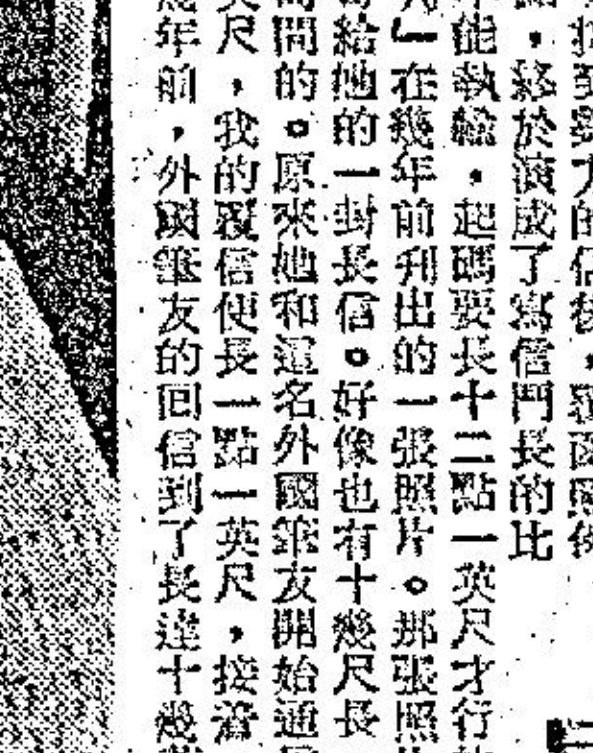 到數方的信後，覆函照例
，終於演成了寫信鬥長的比
能執輸，起碼要長十二點一英尺才行
」在幾年前刊出的一張照片。那張照
給他的一封長信。好像也有十幾尺長
間的。原來她和這名外國筆友開始通
尺，我的覆信便長一點一英尺，接着
年前，外國筆友的回信到了長達十幾